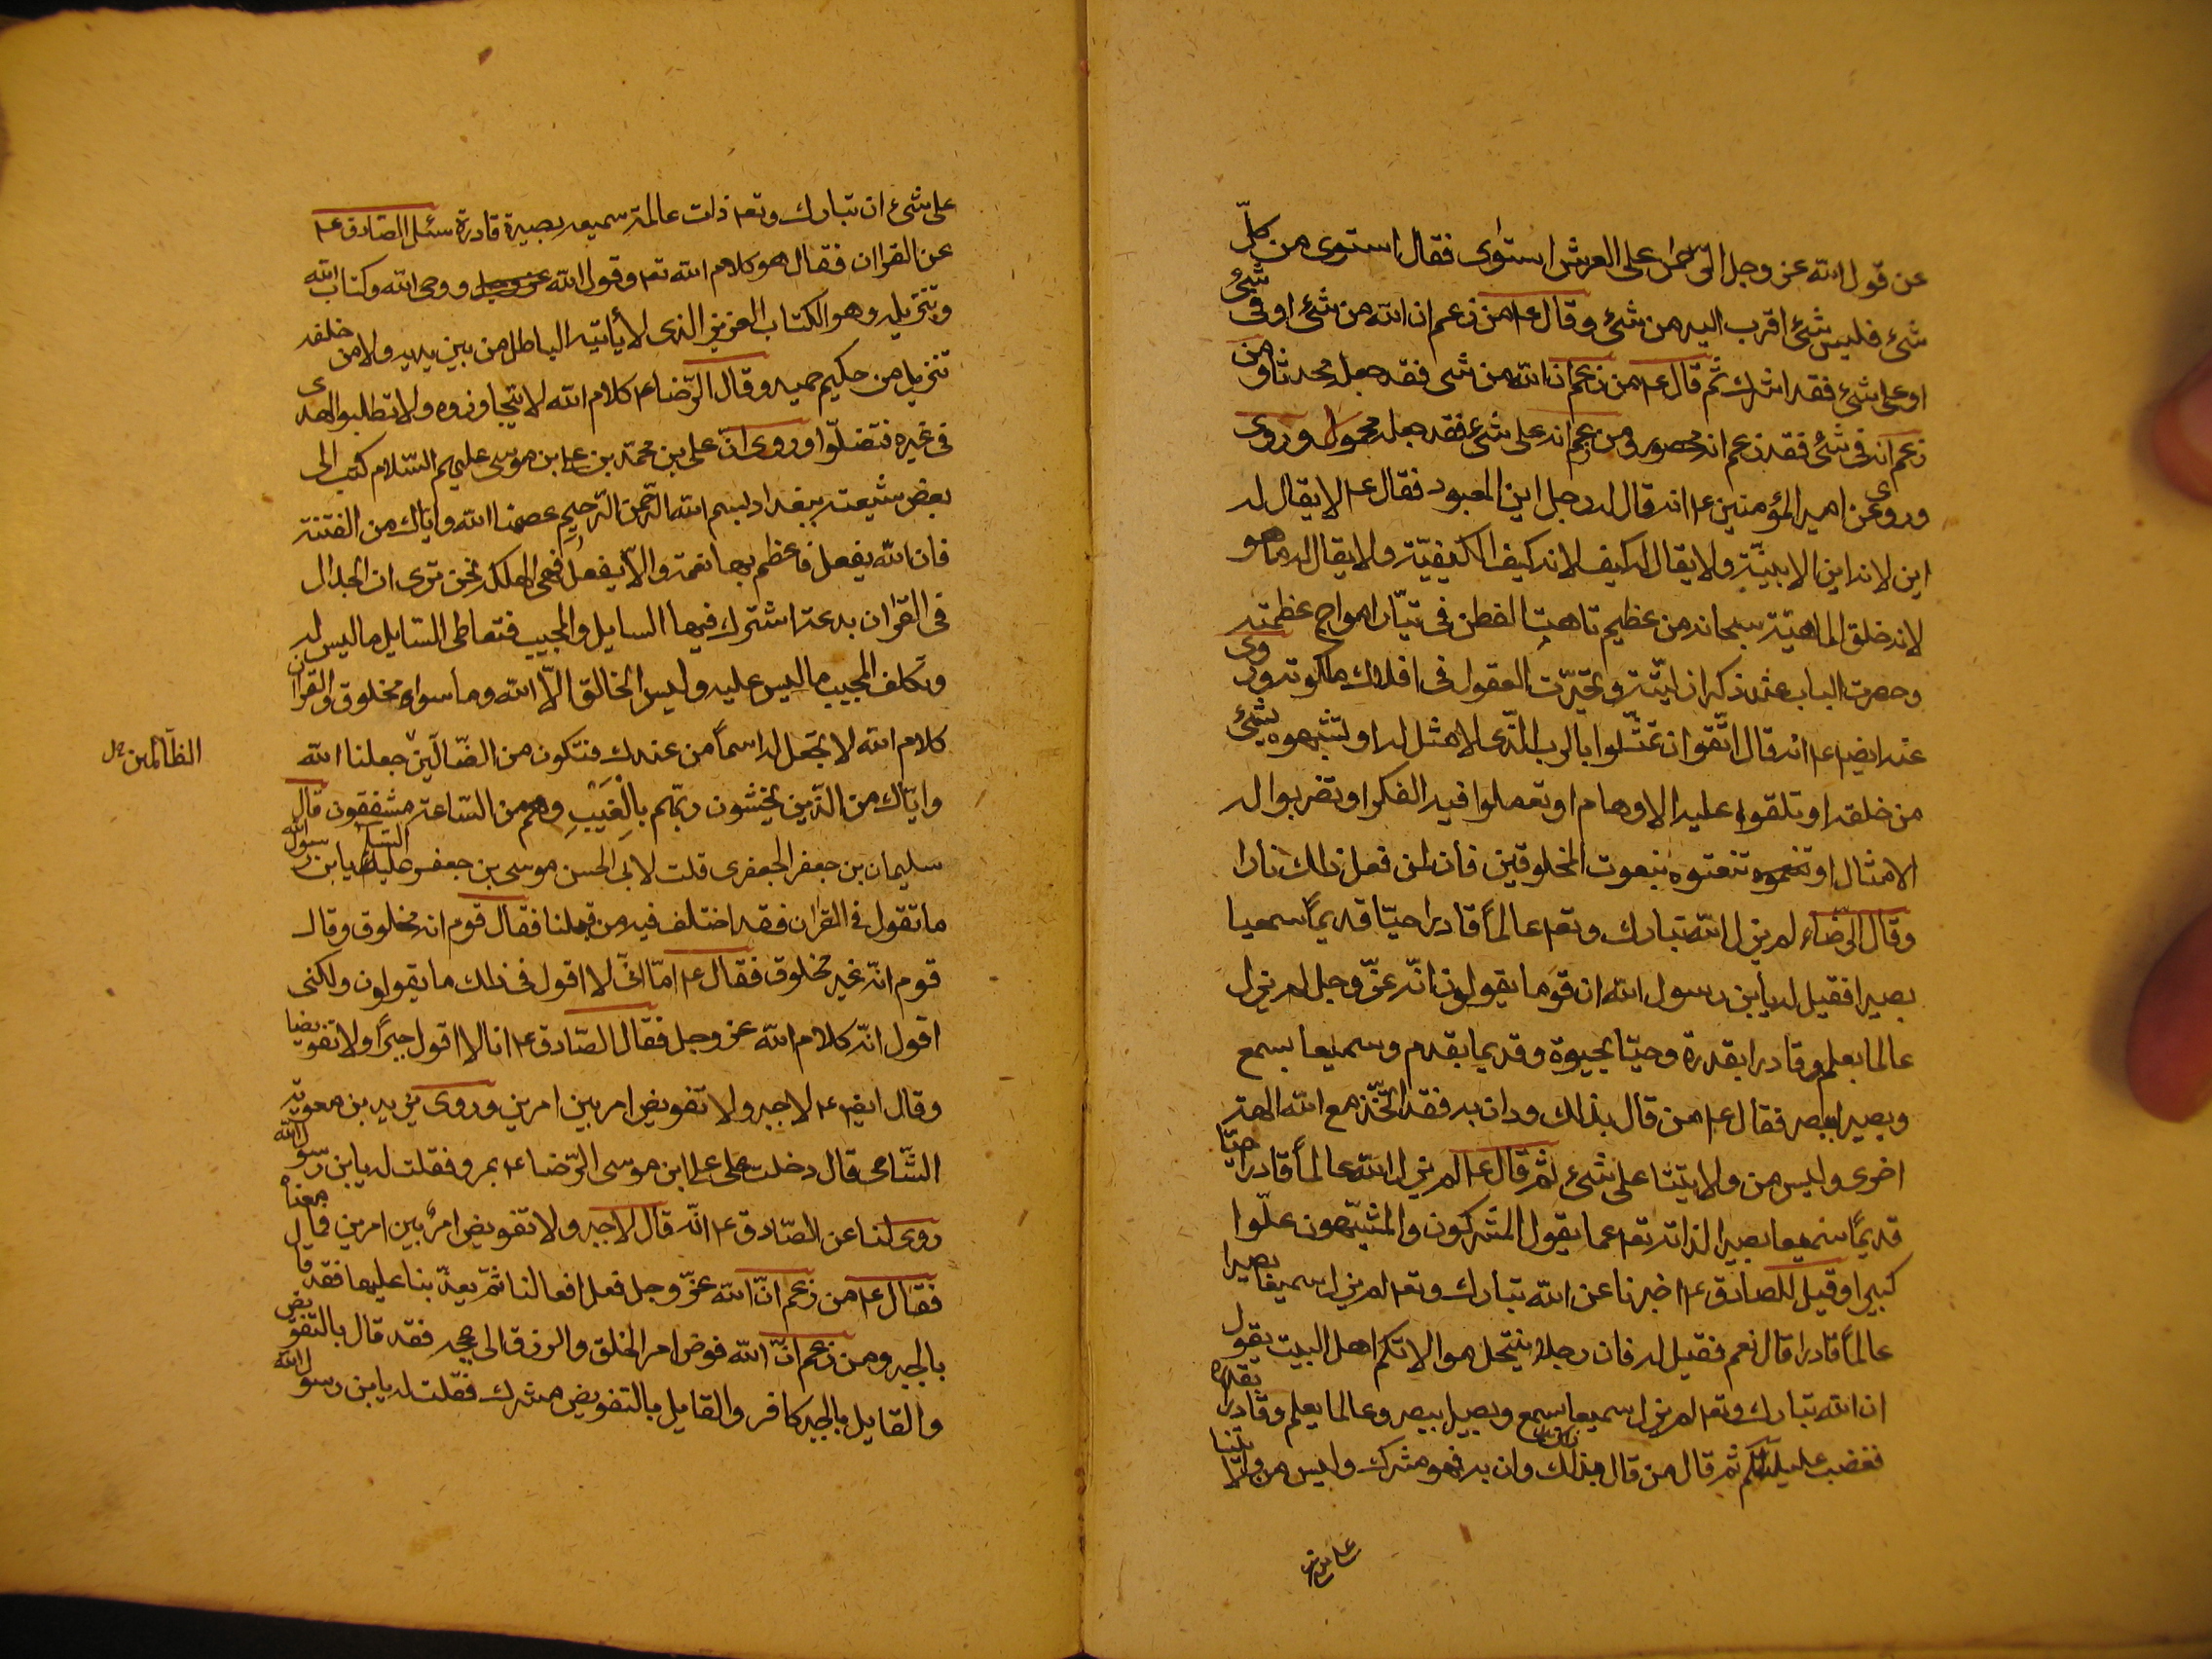 عن قول الله عز وجل الرحمن على العرش استوى فقال استوى من كلّ
شئ فليس شئ اقرب اليه من شئ وقال ع من زعم ان الله من شئ او فى شئ
او على شئ فقد اشرك ثم قال ع من زعم ان الله من شى فقد جعله محدثا ومن
زعم انه فى شئ فقد زعم انه محصور ومن زعم انه على شئ فقد جعله محمولا وروى
وروى عن امير المؤمنين ع انه قال له رجل اين المعبود فقال ع لا يقال له
اين لانه اين الاينيّة ولا يقال له كيف لانه كيف الكيفيّة ولا يقال له ما هو
لانه خلق الماهيّة سبحانه من عظيم تاهت الفطن فى تيّار امواج عظمته
وحصرت الباب عند ذكر ازليّته وتحيّرت العقول فى افلاك ملكوته وروى
عنه ايضا ع انه قال اتّقوا ان تمثّلوا بالرب الذى لا مثل له او تشبهوه بشئ
من خلقه او تلقوا عليه الاوهام او تعملوا فيه الفكر او تضربوا له
الامثال او تنعتوه بنعوت المخلوقين فان لمن فعل ذلك نارا
وقال الرّضاء لم يزل الله تبارك وتعـ عالماً قادرا حيّا قديماً سميعا
بصيرا فقيل له يابن رسول الله ان قوما يقولون انّه عزّ وجل لم يزل
عالما بعلم وقادرا بقدرة وحيّا بحيوة وقديما بقدم وسميعا بسمع
وبصيرا ببصر فقال ع من قال بذلك ودان به فقد اتّخذ مع الله الهة
اخرى وليس من ولايتنا على شئ ثم قال ع لم يزل الله عالماً قادرا حيّا
قديماً سميعا بصيرا لذاته تعـ عما يقول المشركون والمشبّهون علوّا
كبيرا وقيل للصادق ع اخبرنا عن الله تبارك وتعـ لم يزل سميعا بصيرا
عالماً قادرا قال نعم فقيل له فان رجلا ينتحل موالاتكم اهل البيت يقول
ان الله تبارك وتعـ لم يزل سميعا بسمع وبصيرا ببصر وعالما بعلم وقادرا بقدرة
فغضب عليه السلام ثم قال من قال بذلك ودان به فهو مشرك وليس من ولايتنا
على شئ
على شئ ان تبارك وتعـ ذات عالمة سميعه بصيرة قادرة سئل الصادق ع
عن القران فقال هو كلام الله تعـ وقول الله عز وجل ووحى الله وكتاب الله
وتنزيله وهو الكتاب العزيز الذى لا يأتيه الباطل من بين يديه ولا من خلفه
تنزيل من حكيم حميد وقال الرّضا ع كلام الله لا تتجاوزوه ولا تطلبوا الهدى
فى غيره فتضلّوا وروى انّ على بن محمّد بن على بن موسى عليهم السّلام كتب الى
بعض شيعته ببغداد بسم الله الرّحمن الرّحيم عصمنا الله وايّاك من الفتنة
فان الله يفعل فاعظم بها نعمة والاّ يفعل فهى الهلكة نحن نرى ان الجدال
فى القران بدعة اشترك فيها السايل والمجيب فتعاطى السّايل ما ليس له
وتكلف المجيب ما ليس عليه وليس الخالق الاّ الله وما سواه مخلوق والقران
كلام الله لا تجعل له اسماً من عندك فتكون من الضّالّين جعلنا الله
الظّالمين
وايّاك من الّذين يخشون ربّهم بالغيب وهم من السّاعة مشفقون قال
سليمان بن جعفر الجعفرى قلت لابى الحسن موسى بن جعفر عليه السلام يابن رسول الله
ما تقول فى القران فقد اختلف فيه من قبلنا فقال قوم انه مخلوق وقال
قوم انّه غير مخلوق فقال ع امّا انّى لا اقول فى ذلك ما يقولون ولكنى
اقول انّه كلام الله عز وجل فقال الصّادق ع انا لا اقول جبرًا ولا تفويضا
وقال ايضا ع لا جبر ولا تفويض امر بين امرين وروى يزيد بن معوية
الشّامى قال دخلت على على ابن موسى الرّضا ع بمرو فقلت له يابن رسول الله
روى لنا عن الصّادق ع انّه قال لا جبر ولا تفويض امرٌ بين امرين فما معناه
فقال ع من زعم انّ الله عزّ وجل فعل افعالنا ثمّ يعذّبنا عليها فقد قال
بالجبر ومن زعم انّ الله فوض امر الخلق والرزق الى حججه فقد قال بالتفويض
والقايل بالجبر كافر والقايل بالتفويض مشرك فقلت له يابن رسول الله